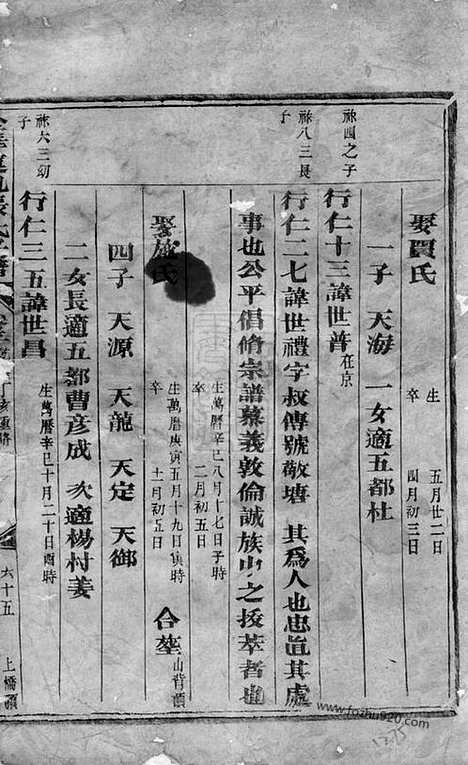 娶賈氏
生 五月廿二日
卒 四月初三日
一子 天海 一女適五都杜
祿四之子
行仁十三諱世普在京
祿八三長子
行仁二七諱世禮字叔傳號敬塘 其為人也忠直其處
事也公平倡脩宗譜慕義敦倫誠族中之拔萃者也
生萬曆辛巳八月十七日子時
卒 二月初五日
娶 氏
生萬曆庚寅五月十九日寅時
卒 十一月初五日
合塟山背頭
四子 天源 天龍 天定 天御
二女長適五都曹彥成 次適楊村姜
祿大三幼子
行仁三五諱世昌
生萬曆辛巳十月二十日酉時
六十五
上橋頭
www.fozhu920.com
1275